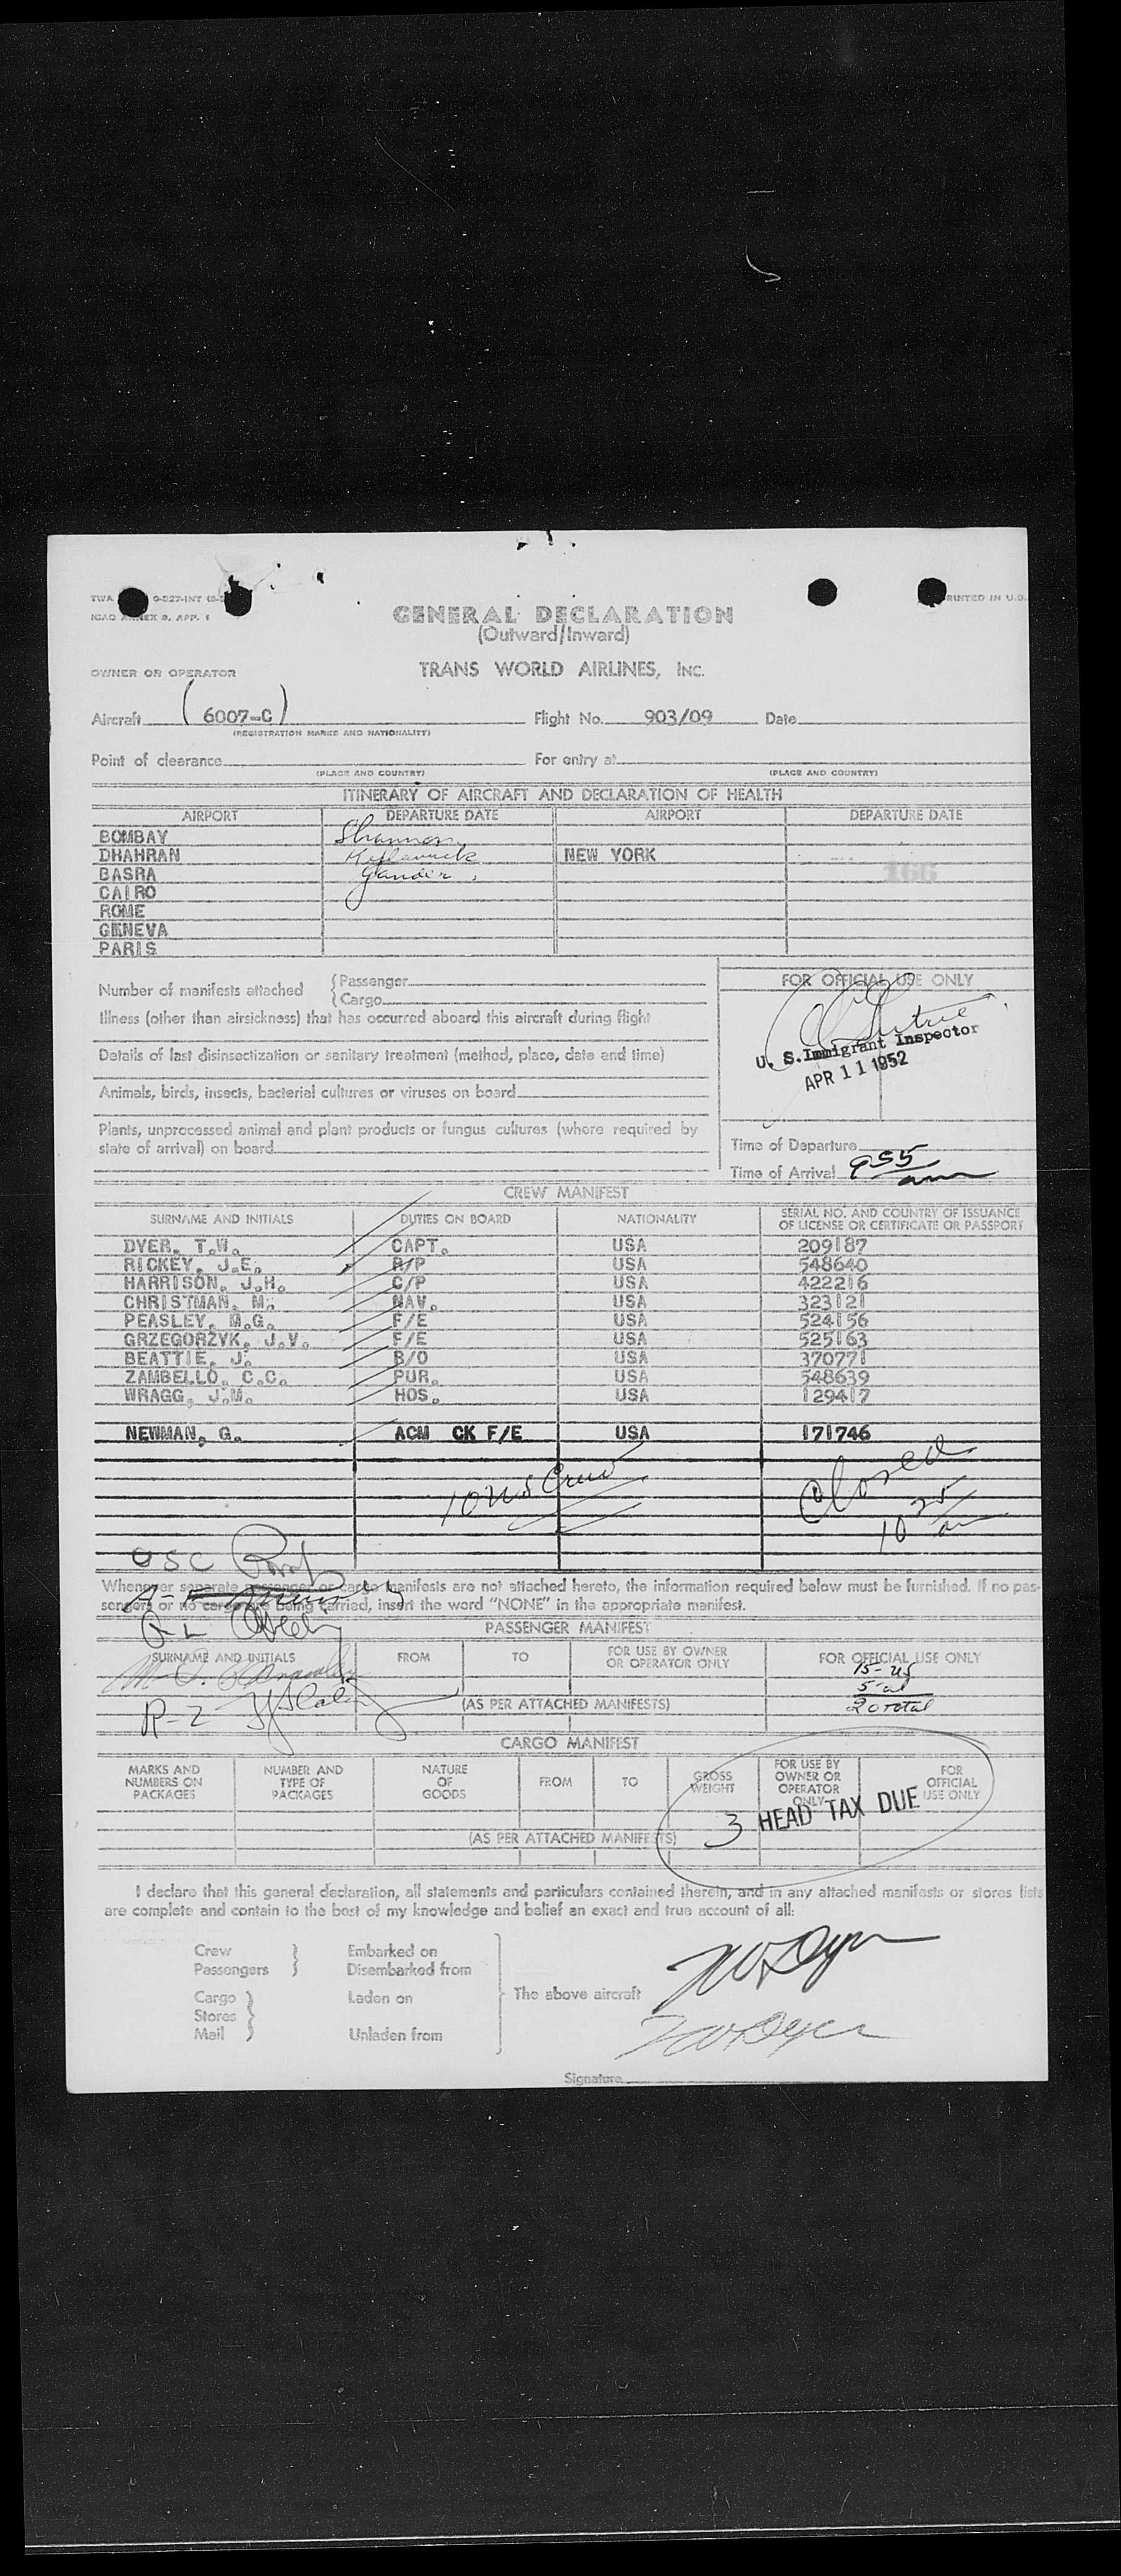 TWA 0-527-INT
PRINTED IN U.S.
ICAO ANNEX 9, APP. 1
GENERAL DECLARATION
(Outward/Inward)
OWNER OR OPERATOR TRANS WORLD AIRLINES, INC.
Aircraft (6007-C) Flight No. 903/09 Date
(REGISTRATION MARKS AND NATIONALITY)
Point of clearance For entry at
(PLACE AND COUNTRY) (PLACE AND COUNTRY)
ITINERARY OF AIRCRAFT AND DECLARATION OF HEALTH
AIRPORT DEPARTURE DATE AIRPORT DEPARTURE DATE
BOMBAY Shannon
DHAHRAN NEW YORK
BASRA Gander 166
CAIRO
ROME
GENEVA
PARIS
Number of manifests attached {Passenger
{Cargo
FOR OFFICIAL USE ONLY
Illness (other than airsickness) that has occurred aboard this aircraft during flight
U. S. Immigrant Inspector
APR 11 1952
Details of last disinsectization or sanitary treatment (method, place, date and time)
Animals, birds, insects, bacterial cultures or viruses on board
Plants, unprocessed animal and plant products or fungus cultures (where required by
state of arrival) on board
Time of Departure
Time of Arrival 955 am
CREW MANIFEST
SURNAME AND INITIALS DUTIES ON BOARD NATIONALITY SERIAL NO. AND COUNTRY OF ISSUANCE
OF LICENSE OR CERTIFICATE OR PASSPORT
DYER, T.W. CAPT. USA 209187
RICKEY, J.E. R/P USA 548640
HARRISON, J.H. C/P USA 422216
CHRISTMAN, M. NAV. USA 323121
PEASLEY, M.G. F/E USA 524156
GRZEGORZYK, J.V. F/E USA 525163
BEATTIE, J. B/O USA 370771
ZAMBELLO, C.C. PUR. USA 548639
WRAGG, J.M. HOS. USA 129417
NEWMAN, G. ACM CK F/E USA 171746
10 US Crew
Closed
10 25 am
USC
Whenever separate passenger or cargo manifests are not attached hereto, the information required below must be furnished. If no pas-
sengers or no cargo are being carried, insert the word "NONE" in the appropriate manifest.
PASSENGER MANIFEST
SURNAME AND INITIALS FROM TO FOR USE BY OWNER
OR OPERATOR ONLY FOR OFFICIAL USE ONLY
15-US
5-al
20 total
(AS PER ATTACHED MANIFESTS)
R-2
CARGO MANIFEST
MARKS AND
NUMBERS ON
PACKAGES NUMBER AND
TYPE OF
PACKAGES NATURE
OF
GOODS FROM TO GROSS
WEIGHT FOR USE BY
OWNER OR
OPERATOR
ONLY FOR
OFFICIAL
USE ONLY
3 HEAD TAX DUE
(AS PER ATTACHED MANIFESTS)
I declare that this general declaration, all statements and particulars contained therein, and in any attached manifests or stores lists
are complete and contain to the best of my knowledge and belief an exact and true account of all:
Crew } Embarked on
Passengers } Disembarked from
Cargo } Laden on The above aircraft TW Dyer
Stores }
Mail } Unladen from TW Dyer
Signature